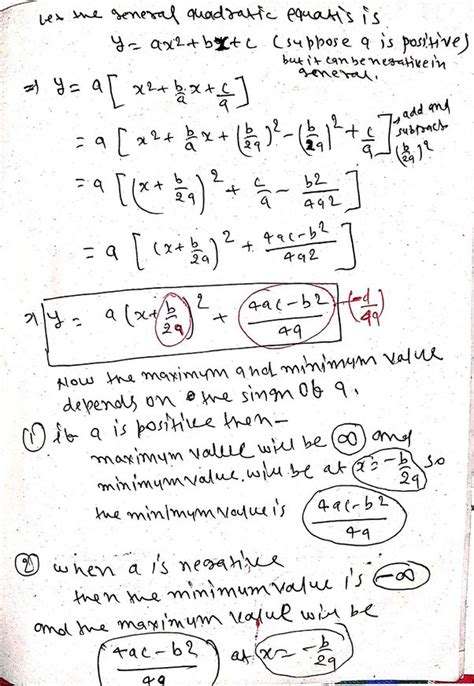 Let the general quadratic equatis is
y = ax2+bx+c (suppose a is positive)
but it can be negative in
general.
⇒ y = a [ x2 + b/a x + c/a ]
= a [ x2 + b/a x + (b/2a)^2 - (b/2a)^2 + c/a ] → add and subtract (b/2a)^2
= a [ (x + b/2a)^2 + c/a - b2/4a2 ]
= a [ (x + b/2a)^2 + 4ac-b2/4a2 ]
⇒ y = a (x + b/2a)^2 + 4ac-b2/4a (-d/4a)
Now the maximum and minimum value
depends on the singn Of a.
(1) if a is positive then—
maximum value will be ∞ and
minimum value will be at x = -b/2a so
the minimum value is 4ac-b2/4a
(2) when a is negative
then the minimum value is -∞
and the maximum value will be
4ac-b2/4a at x = -b/2a